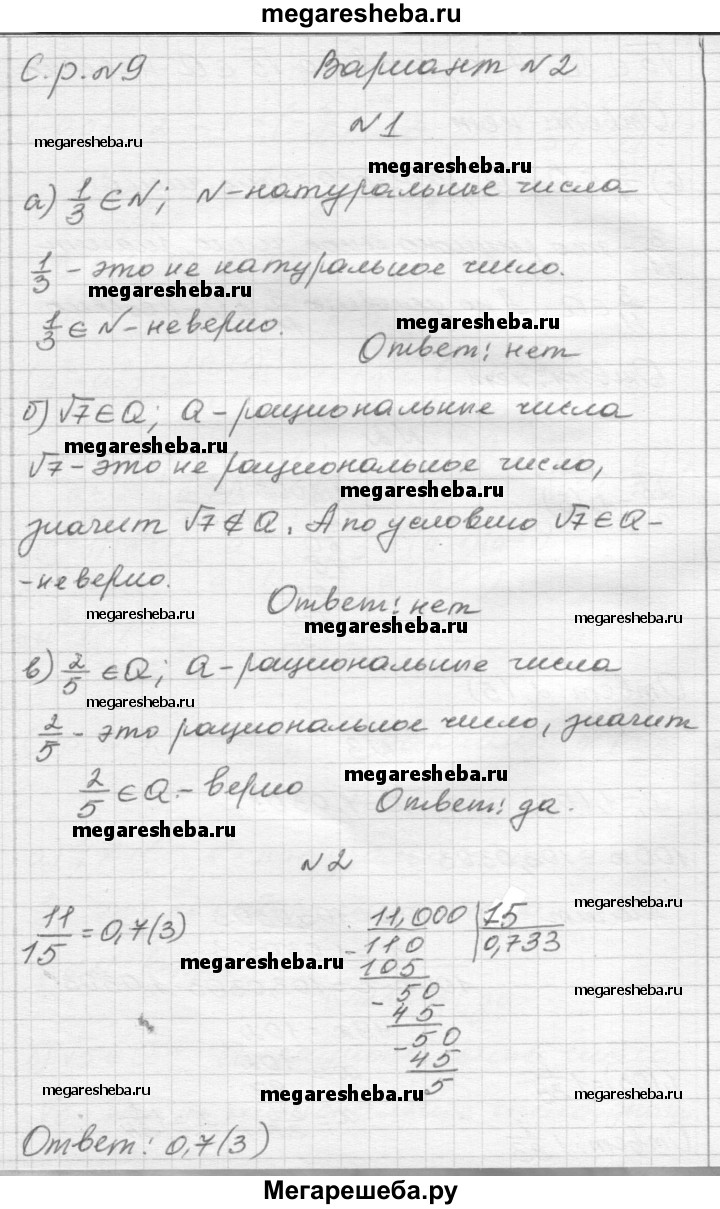 megaresheba.ru
С.р.№9 Вариант №2
№1
megaresheba.ru
megaresheba.ru
а) 1/3 ∈ N; N - натуральные числа
1/3 - это не натуральное число.
megaresheba.ru
1/3 ∈ N - неверно.
megaresheba.ru
Ответ: нет
б) √7 ∈ Q; Q - рациональные числа
megaresheba.ru
√7 - это не рациональное число,
megaresheba.ru
значит √7 ∉ Q. А по условию √7 ∈ Q -
- неверно.
Ответ: нет
megaresheba.ru
megaresheba.ru
megaresheba.ru
в) 2/5 ∈ Q; Q - рациональные числа
megaresheba.ru
2/5 - это рациональное число, значит
megaresheba.ru
2/5 ∈ Q - верно
Ответ: да.
megaresheba.ru
№2
megaresheba.ru
11/15 = 0,7(3)
11,000 | 15
- 110 | 0,733
megaresheba.ru
105
- 50
megaresheba.ru
45
- 50
45
5
megaresheba.ru
megaresheba.ru
megaresheba.ru
Ответ: 0,7(3)
Мегарешеба.ру